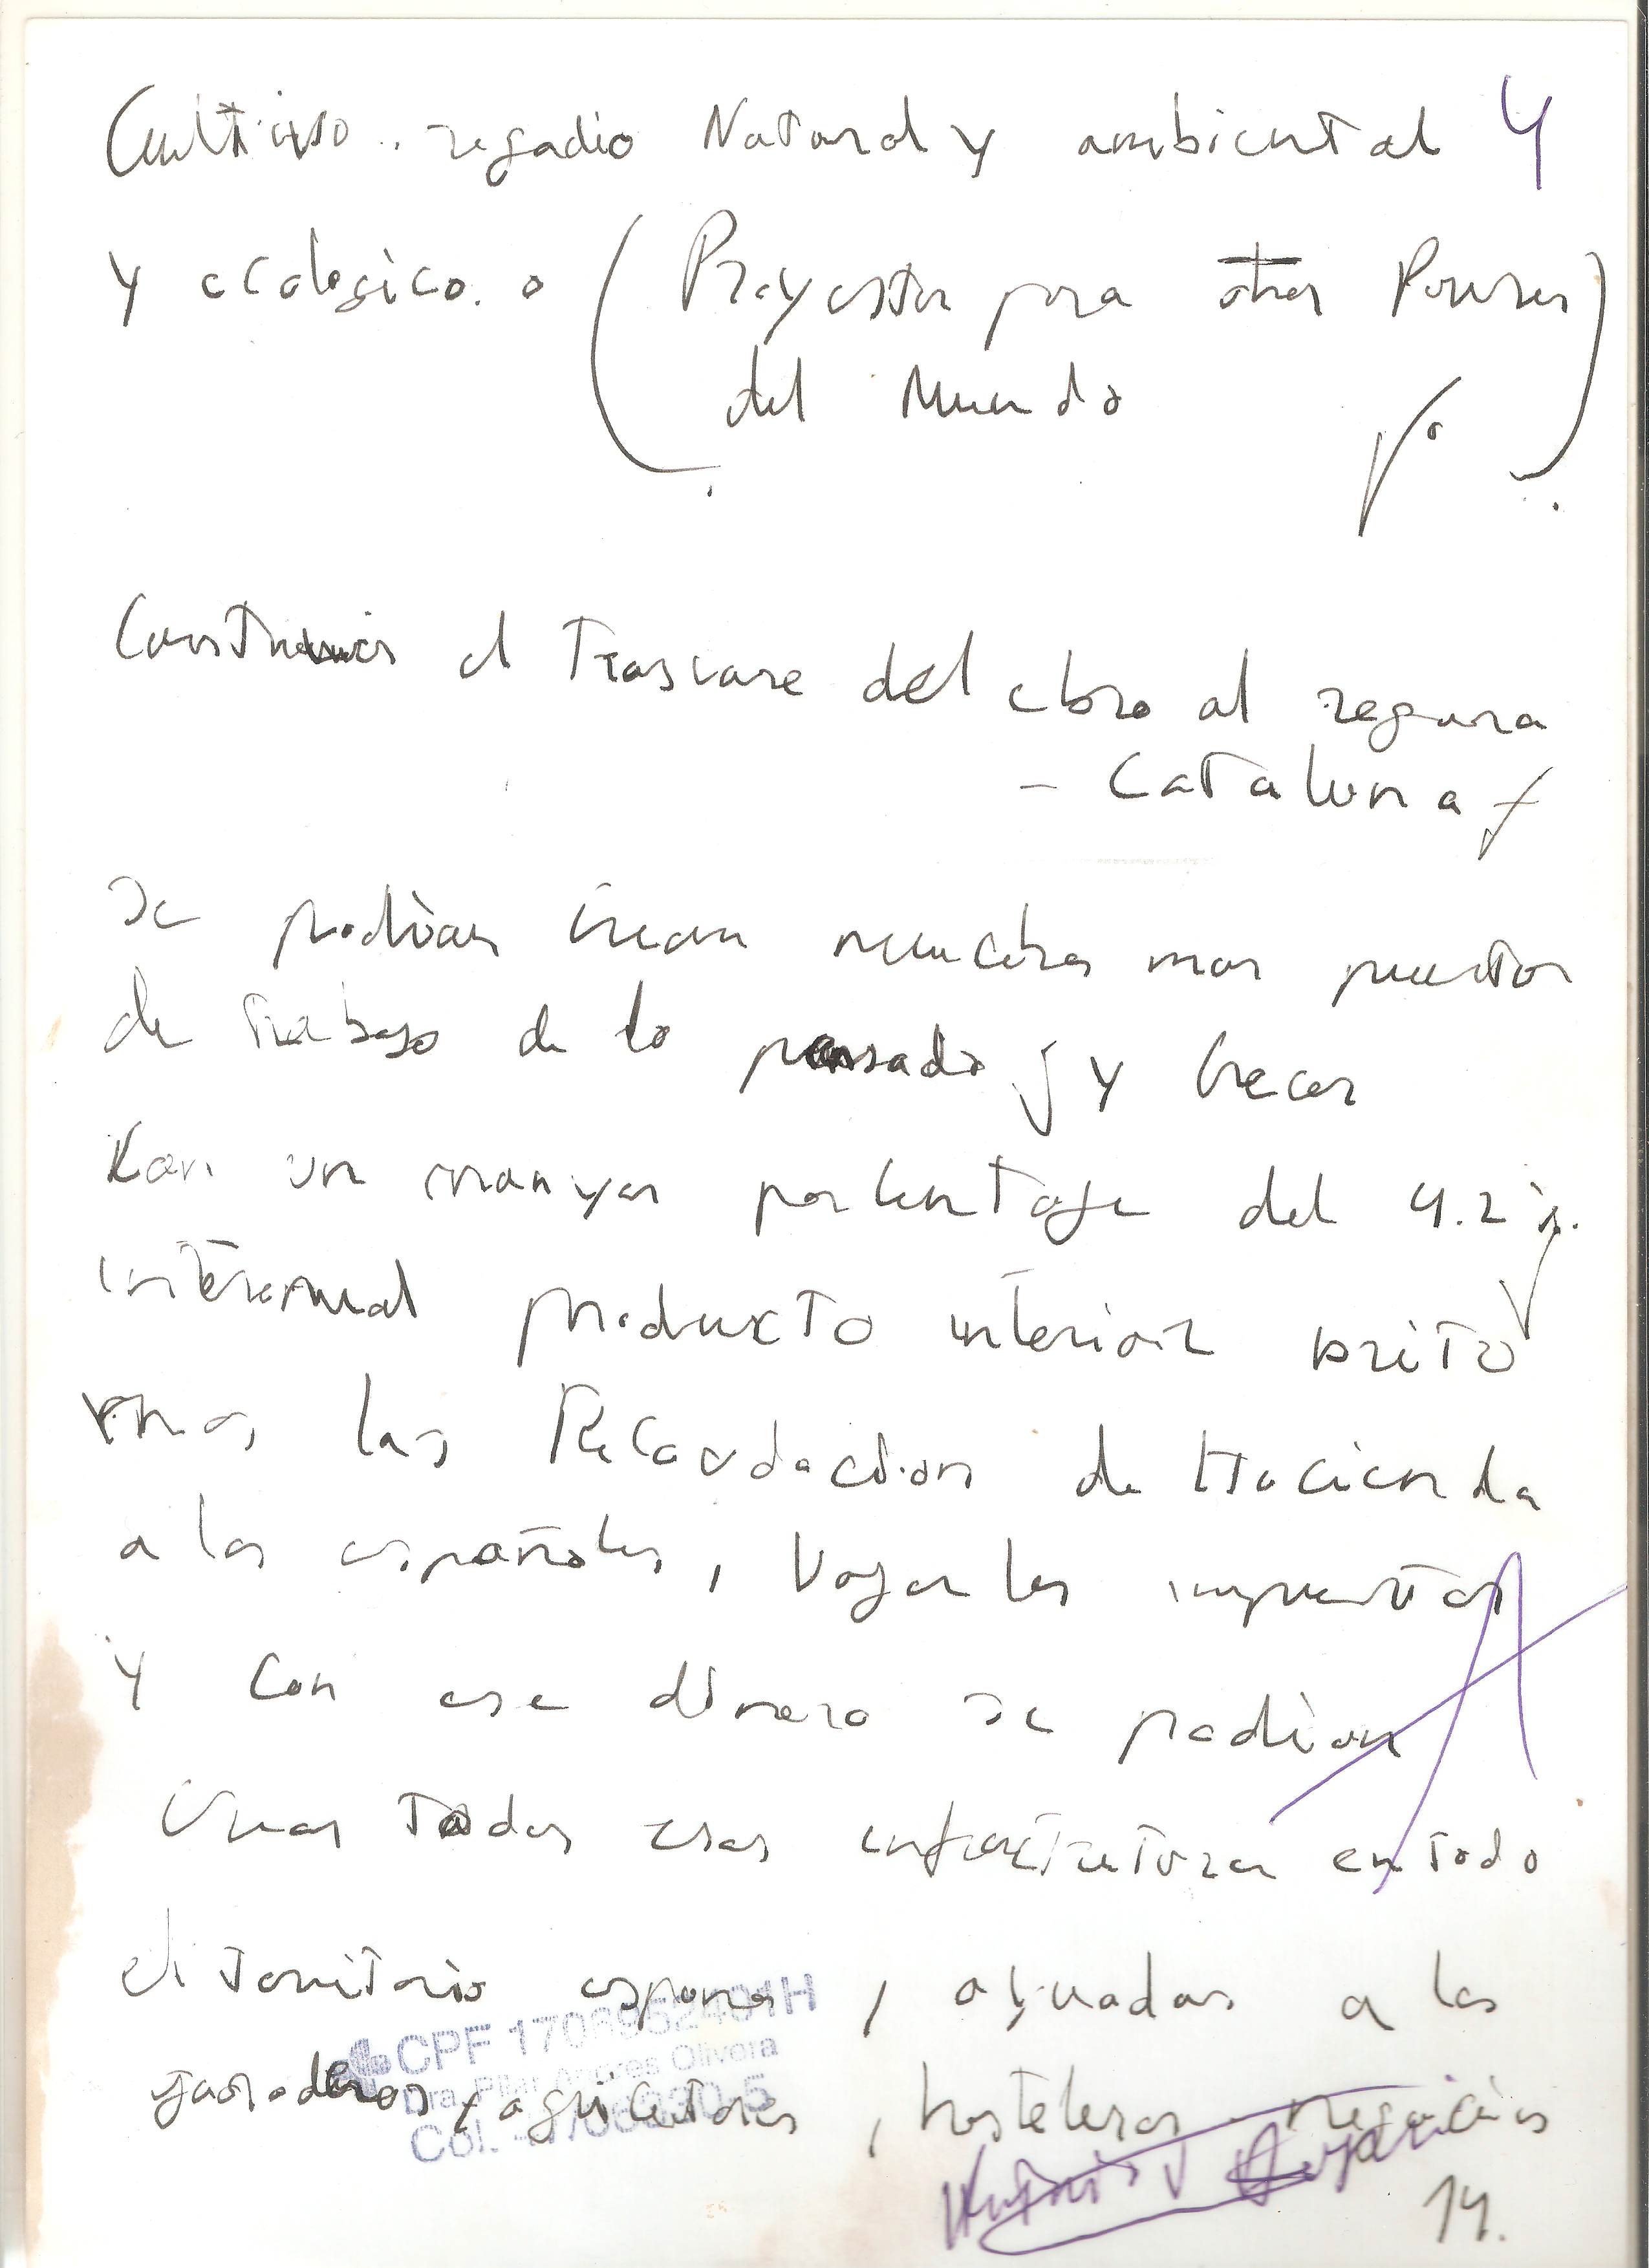 Cultivo.. regadio Natural y ambiental 4
y ecologico. o ( Proyectos para otros Paises )
del Mundo
Construir el Trasvase del ebro al segura
- Cataluna
Se podian crear muchos mas puestos
de trabajo de lo pensado y crecer
Kon un manyor porcentage del 4.2 %.
interanual producto interior brito
mas las Recaudacion de Hacienda
a los españoles, bajar les impuestos
y con ese dinero se podian
crear todas esas infractruturas en todo
el territorio espana, ayuadas a los
ganaderos y agricultores, hosteleros negocios
CPF 1706952401H
Dra. Pilar Andres Olivera
Col.
14.